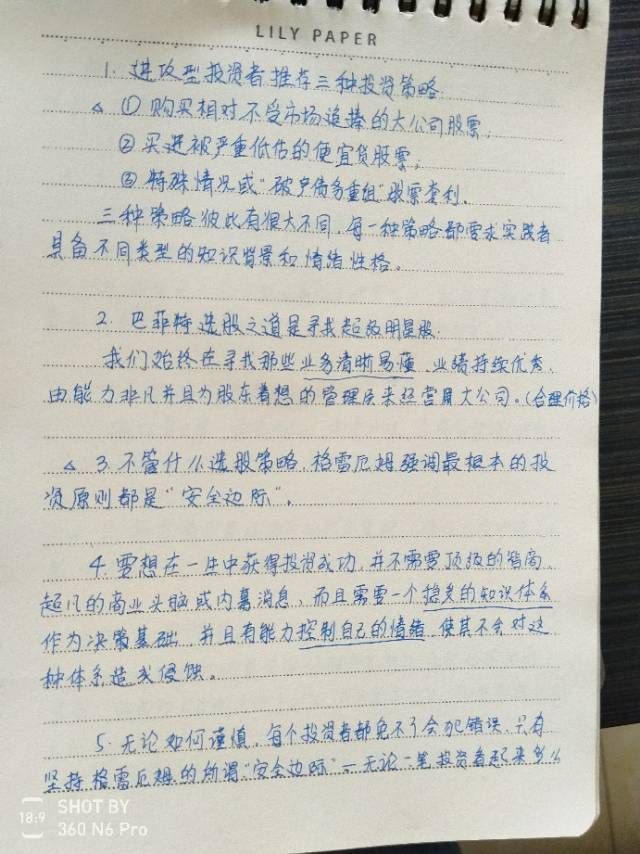 LILY PAPER
1. 进攻型投资者推荐三种投资策略.
△ ① 购买相对不受市场追捧的大公司股票;
② 买进被严重低估的便宜货股票;
③ 特殊情况或"破产债务重组"股票套利.
三种策略彼此有很大不同,每一种策略都要求实践者
具备不同类型的知识背景和情绪性格。
2. 巴菲特选股之道是寻找超级明星股.
我们始终在寻找那些业务清晰易懂、业绩持续优秀,
由能力非凡并且为股东着想的管理层来经营的大公司。(合理价格)
△ 3. 不管什么选股策略,格雷厄姆强调最根本的投
资原则都是"安全边际"。
4. 要想在一生中获得投资成功,并不需要顶级的智商、
超凡的商业头脑或内幕消息,而且需要一个稳妥的知识体系
作为决策基础,并且有能力控制自己的情绪,使其不会对这
种体系造成侵蚀。
5. 无论如何谨慎,每个投资者都免不了会犯错误,只有
坚持格雷厄姆的所谓"安全边际"—无论一笔投资看起来多么
18:9
SHOT BY
360 N6 Pro